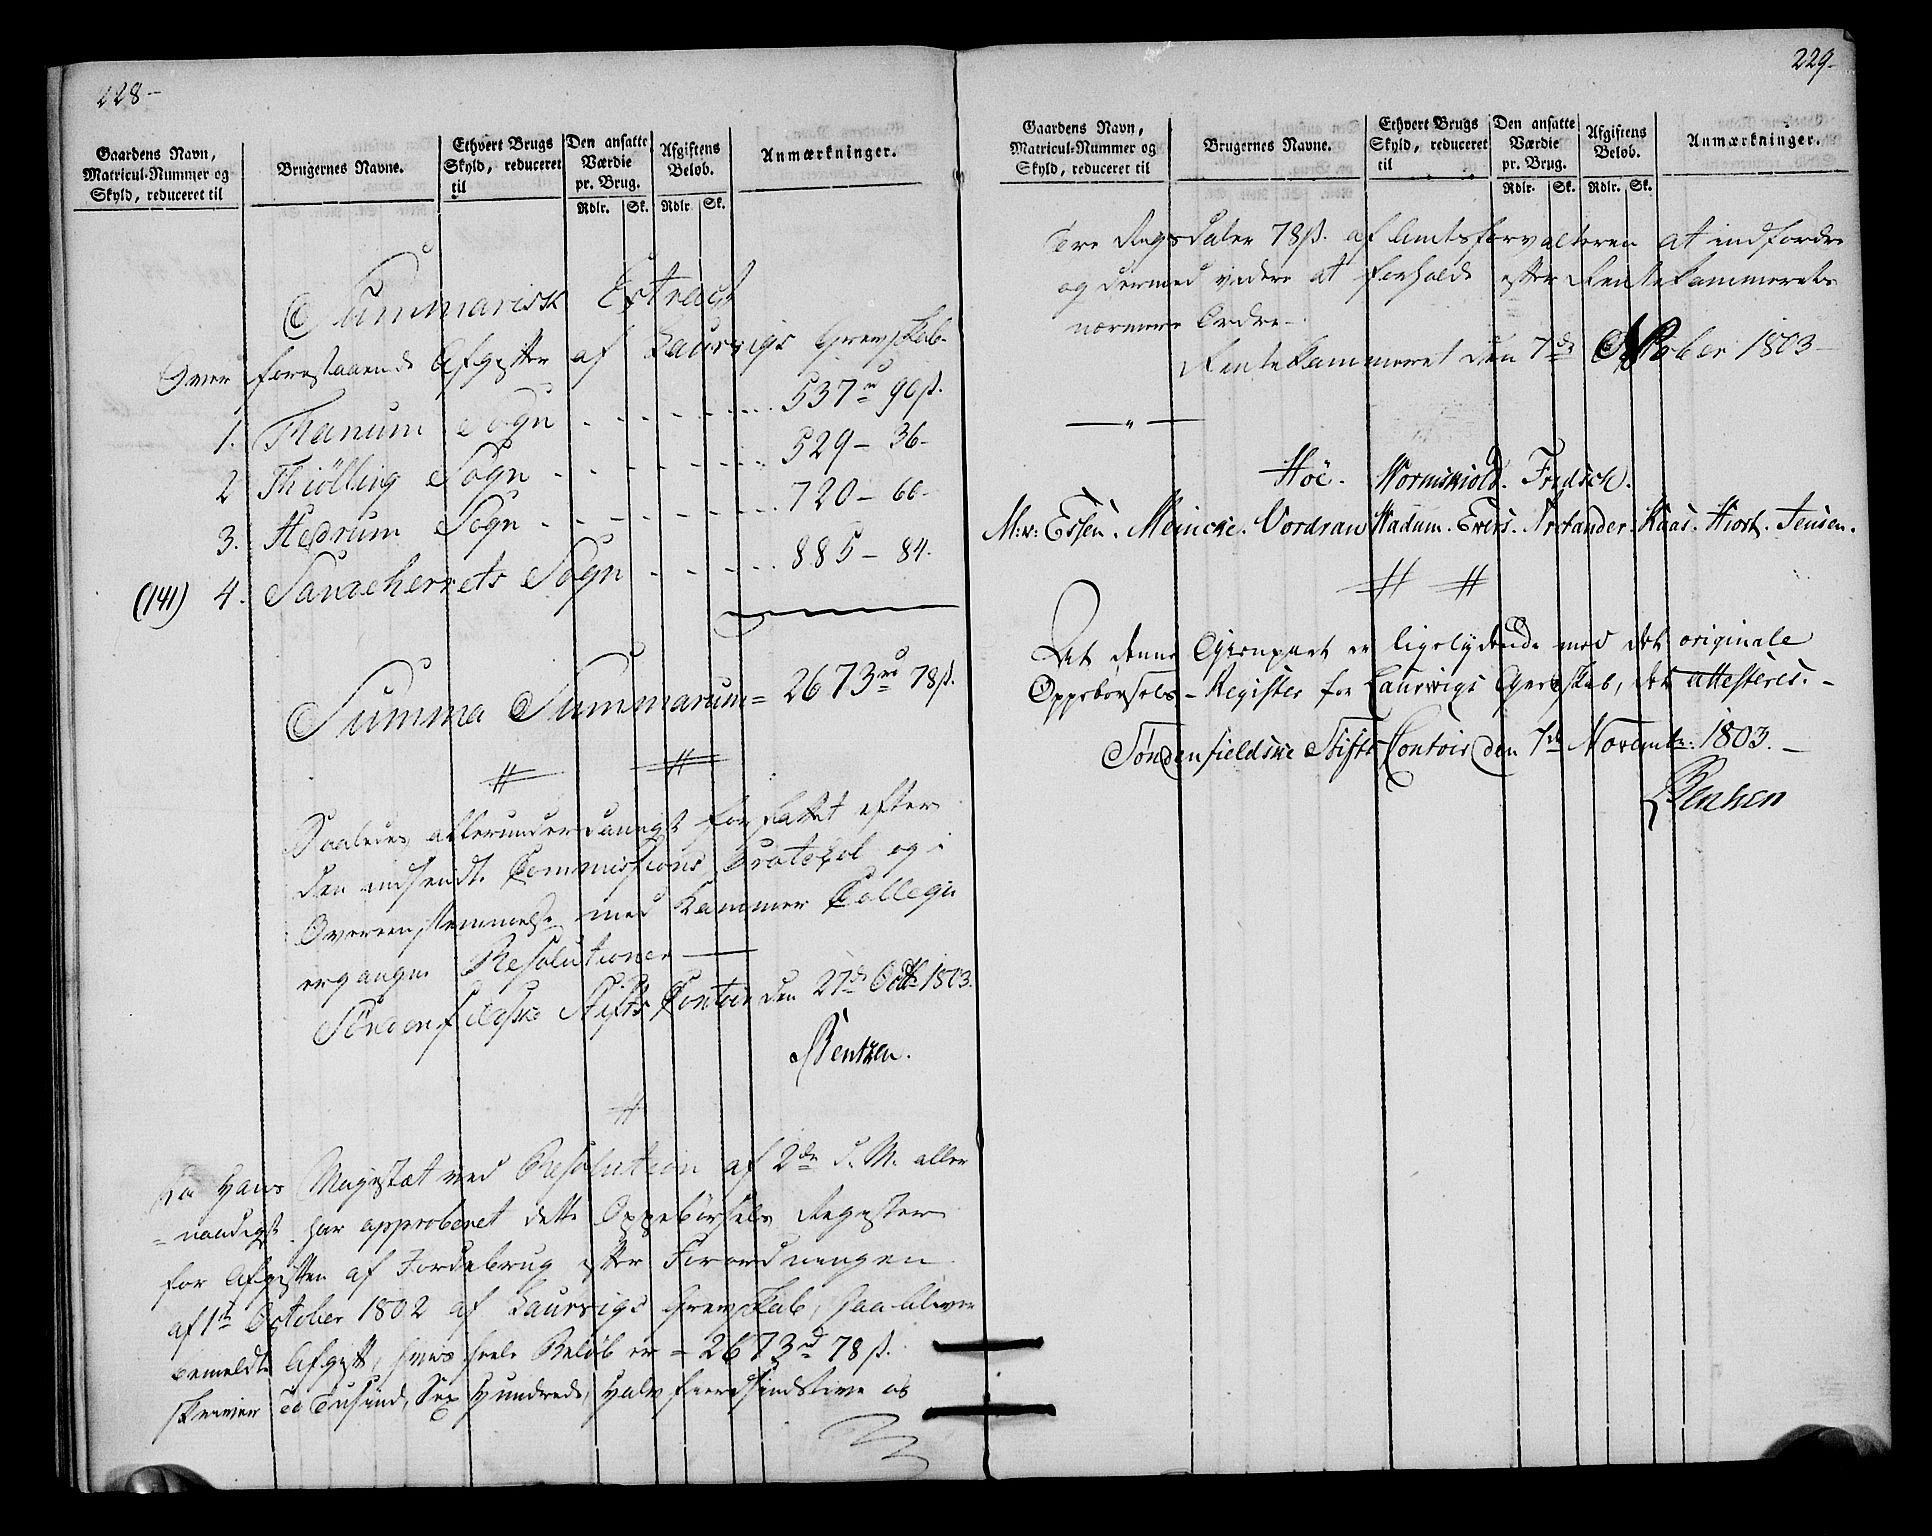 228-
Gaardens Navn, Matricul-Nummer og Skyld, reduceret til
Brugernes Navne.
Ethvert Brugs Skyld, reduceret til
Den ansatte Værdie pr. Brug.
Rdlr. Sk.
Afgiftens Beløb.
Rdlr. Sk.
Anmærkninger.
Summarisk Extract
Over forestaaende Afgifter af Laurvigs Grevskab.
1. Thanum Sogn 537 rd 90 ß.
2 Thiølling Sogn 529 - 36 -
3. Hedrum Sogn 720 - 66 -
(141) 4. Sandeherrets Sogn 885 - 84.
Summa Summarum = 2673 rd 78 ß.
Saaledes allerunderdanigst forfattet efter
den indsendte Commissions Protokol og i
Overeensstemmelse med Kammer Collegii
ergangne Resolutioner
Søndenfieldske Stifts Contoir den 27de Octbr 1803.
Bentzen.
Da Hans Majestæt ved Resolution af 2den d. M. aller
= naadigst har approberet dette Oppebørsels Register
for Afgiften af Jordebrug efter Forordningen
af 1te October 1802 af Laurvigs Grevskab, saa bliver
bemeldte Afgift, hvis heele Beløb er = 2673 rd 78 ß.
skriver To Tusind, Sex Hundrede, Halvfierdsindstive og
229-
Gaardens Navn, Matricul-Nummer og Skyld, reduceret til
Brugernes Navne.
Ethvert Brugs Skyld, reduceret til
Den ansatte Værdie pr. Brug.
Rdlr. Sk.
Afgiftens Beløb.
Rdlr. Sk.
Anmærkninger.
Tre Rigsdaler 78 ß. af Amtsforvalteren at indfordre
og dermed videre at forholde efter Rentekammerets
nærmere Ordre -
Rentekammeret den 7de 1803 -
Høé. Wormskiold. Fridsch.
M: v: Essen. Meincke. Vordran Wadum. Evers. Kaas. Hiort. Jensen.
At denne Gienpart er ligelydende med det originale
Oppebørsels - Register for Laurwigs Grevskab, det attesteres. -
Søndenfieldske Stifts Contoir den 7de Novembr: 1803. -
Bentzen